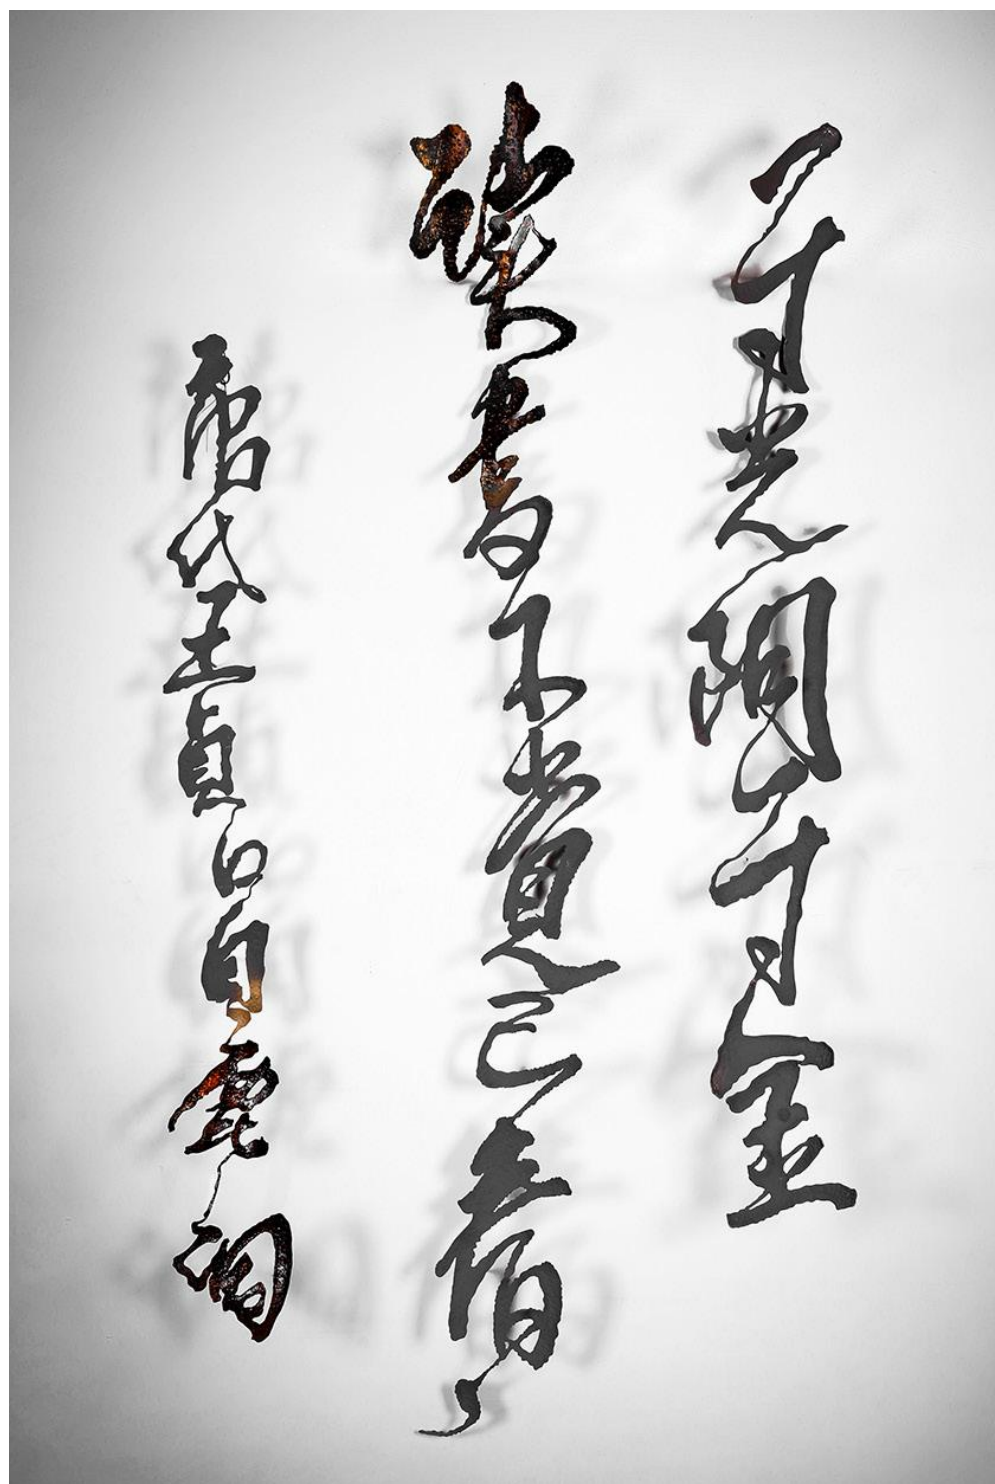 一寸光阴一寸金
讀書不覺已春
唐代王貞白白鹿洞